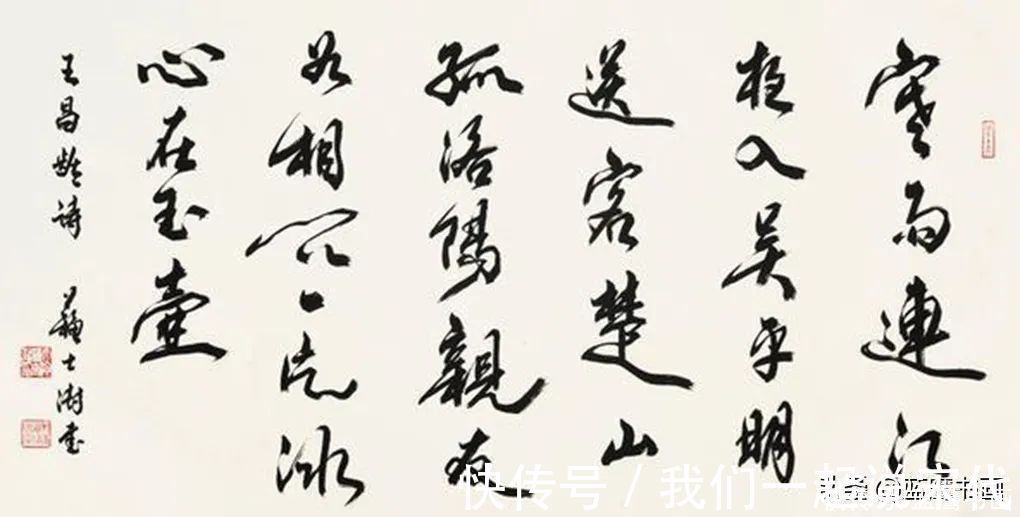 寒雨連江
夜入吳平明
送客楚山
孤洛陽親友
如相問一片冰
心在玉壺
王昌齡詩 蘇士澍書
快传号 / 我们一起